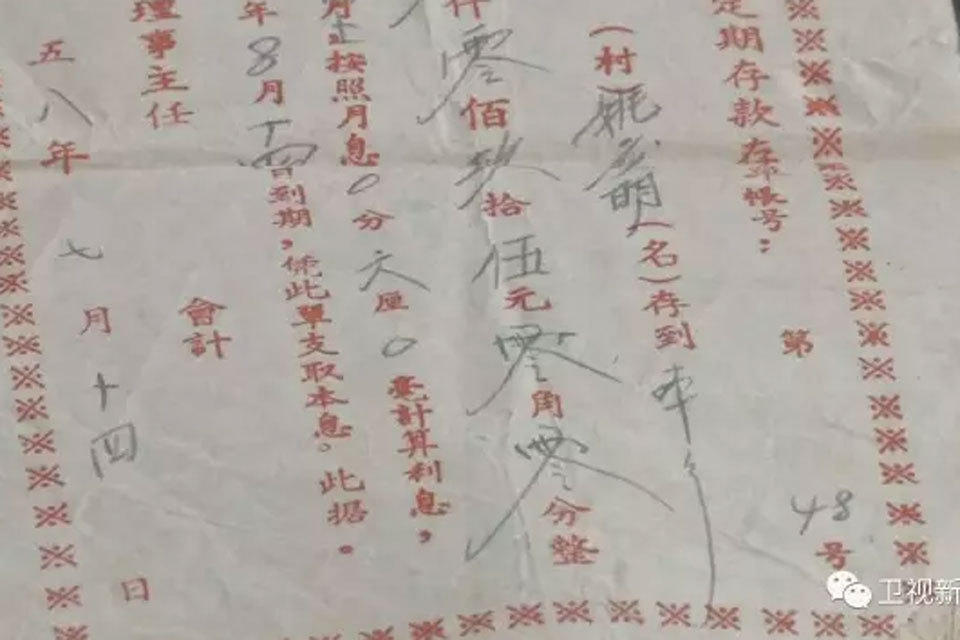 定期存款存单帐号：
第48号
（村姚茂萌（名）存到
仟零佰玖拾伍元零角零分整
月止按照月息0分六厘0毫計算利息，
年8月十四日到期，凭此單支取本息。此据。
理事主任
會計
五八年七月十四日
卫视新